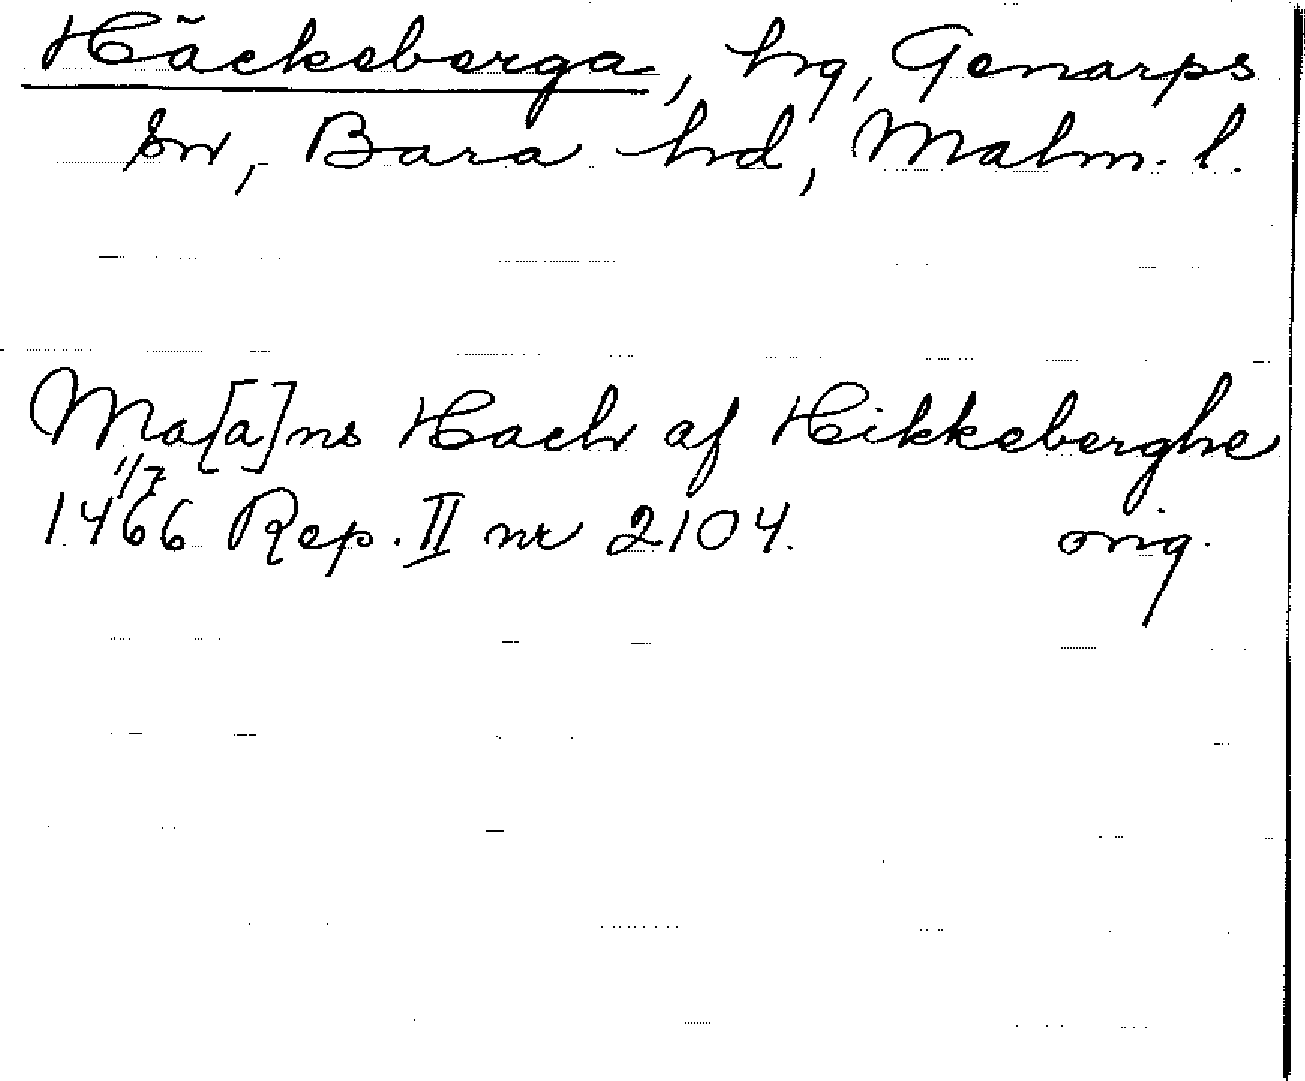 Häckeberga, hg, Genarps
sn, Bara hd, Malm. l.
Ma[a]ns Hach af Hikkeberghe
1/7
1466 Rep. II nr 2104. orig.